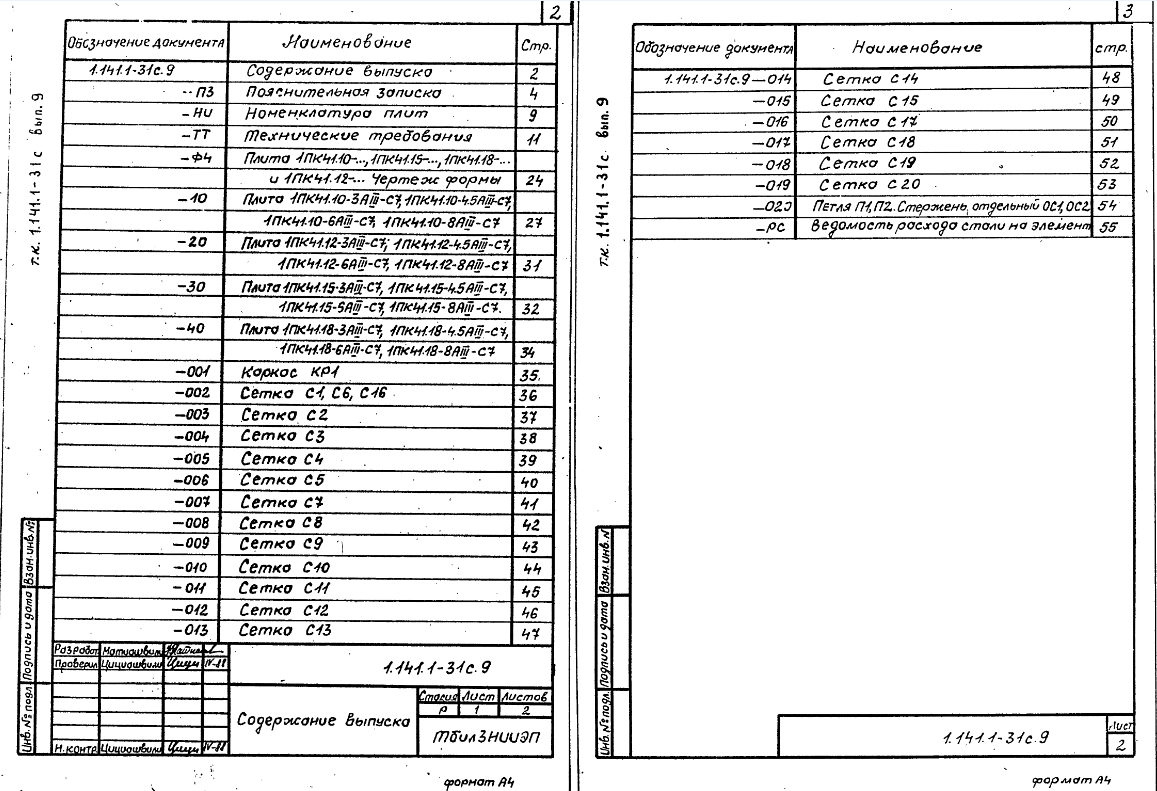 2
Обозначение документа Наименование Стр.
1.141.1-31с.9 Содержание выпуска 2
-ПЗ Пояснительная записка 4
-НИ Номенклатура плит 9
-ТТ Технические требования 11
-Ф4 Плита 1ПК41.10-..., 1ПК41.15-..., 1ПК41.18-...
и 1ПК41.12-... Чертеж формы 24
-10 Плита 1ПК41.10-3АIII-С7, 1ПК41.10-4.5АIII-С7,
1ПК41.10-6АIII-С7, 1ПК41.10-8АIII-С7 27
-20 Плита 1ПК41.12-3АIII-С7; 1ПК41.12-4.5АIII-С7,
1ПК41.12-6АIII-С7, 1ПК41.12-8АIII-С7 31
-30 Плита 1ПК41.15-3АIII-С7, 1ПК41.15-4.5АIII-С7,
1ПК41.15-5АIII-С7, 1ПК41.15-8АIII-С7. 32
-40 Плита 1ПК41.18-3АIII-С7, 1ПК41.18-4.5АIII-С7,
1ПК41.18-6АIII-С7, 1ПК41.18-8АIII-С7 34
-001 Каркас КР1 35.
-002 Сетка С1, С6, С16 36
-003 Сетка С2 37
-004 Сетка С3 38
-005 Сетка С4 39
-006 Сетка С5 40
-007 Сетка С7 41
-008 Сетка С8 42
-009 Сетка С9 43
-010 Сетка С10 44
-011 Сетка С11 45
-012 Сетка С12 46
-013 Сетка С13 47
т.к. 1.141.1-31с вып. 9
Взам.инв.№
Подпись и дата
Инв.№ подл.
Разработ Матиашвили
Проверил Цициашвили IV-88
Н.контр Цициашвили IV-88
1.141.1-31с.9
Содержание выпуска
Стадия Лист Листов
Р 1 2
ТбилЗНИИЭП
формат А4
3
Обозначение документа Наименование стр.
1.141.1-31с.9-014 Сетка С14 48
-015 Сетка С15 49
-016 Сетка С17 50
-017 Сетка С18 51
-018 Сетка С19 52
-019 Сетка С20 53
-020 Петля П1, П2. Стержень отдельный ОС1, ОС2 54
-РС Ведомость расхода стали на элемент 55
т.к. 1.141.1-31с вып. 9
Взам.инв.N
Подпись и дата
Инв.№ подл.
1.141.1-31с.9
Лист
2
формат А4